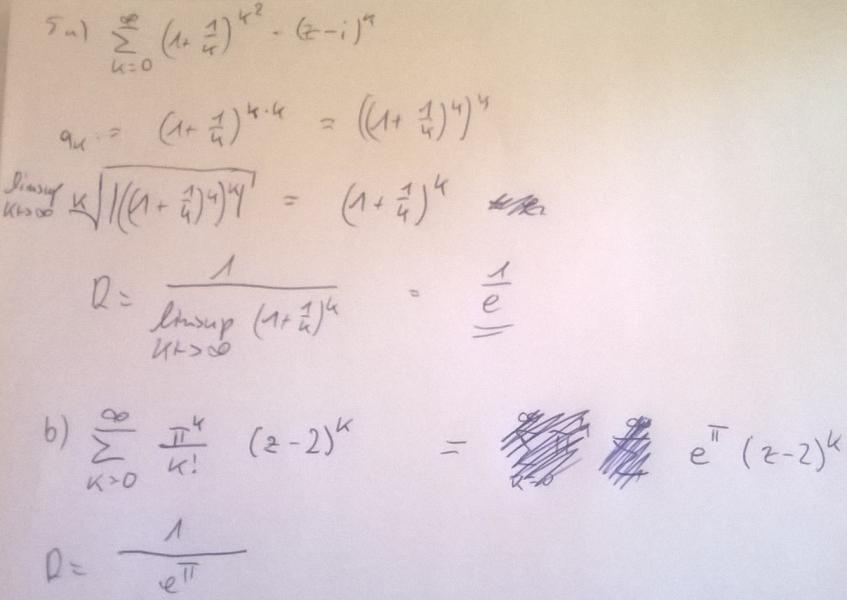 5a) ∑_{k=0}^{∞} (1+1/k)^{k²} · (z-i)^k
a_k = (1+1/k)^{k·k} = ((1+1/k)^k)^k
limsup_{k→∞} k√|((1+1/k)^k)^k| = (1+1/k)^k
R = 1/(limsup_{k→∞} (1+1/k)^k) = 1/e
b) ∑_{k=0}^{∞} π^k/k! (z-2)^k = e^π (z-2)^k
R = 1/e^π